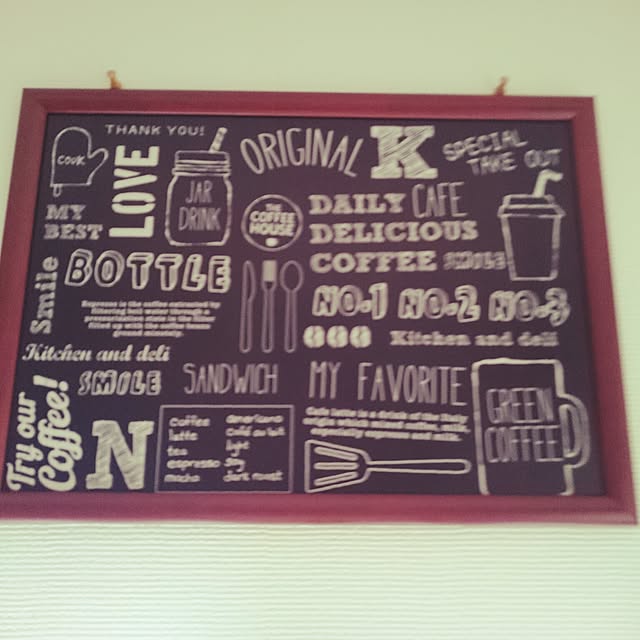 THANK YOU!
COOK
LOVE
MY
BEST
JAR
DRINK
ORIGINAL
K
SPECIAL
TAKE OUT
THE
COFFEE
HOUSE
DAILY CAFE
DELICIOUS
COFFEE SMILE
Smile
BOTTLE
Espresso is the coffee extracted by
filtering boil water through a
filled up with the coffee beans
ground minutely.
NO.1 NO.2 NO.3
Kitchen and deli
Kitchen and deli
SMILE
SANDWICH
MY FAVORITE
Try our
Coffee!
N
coffee
latte
tea
espresso
mocha
americano
cold au lait
light
soy
dark roast
Cafe latte is a drink of the Italy
origin which mixed coffee, milk,
especially espresso and milk.
GREEN
COFFEE